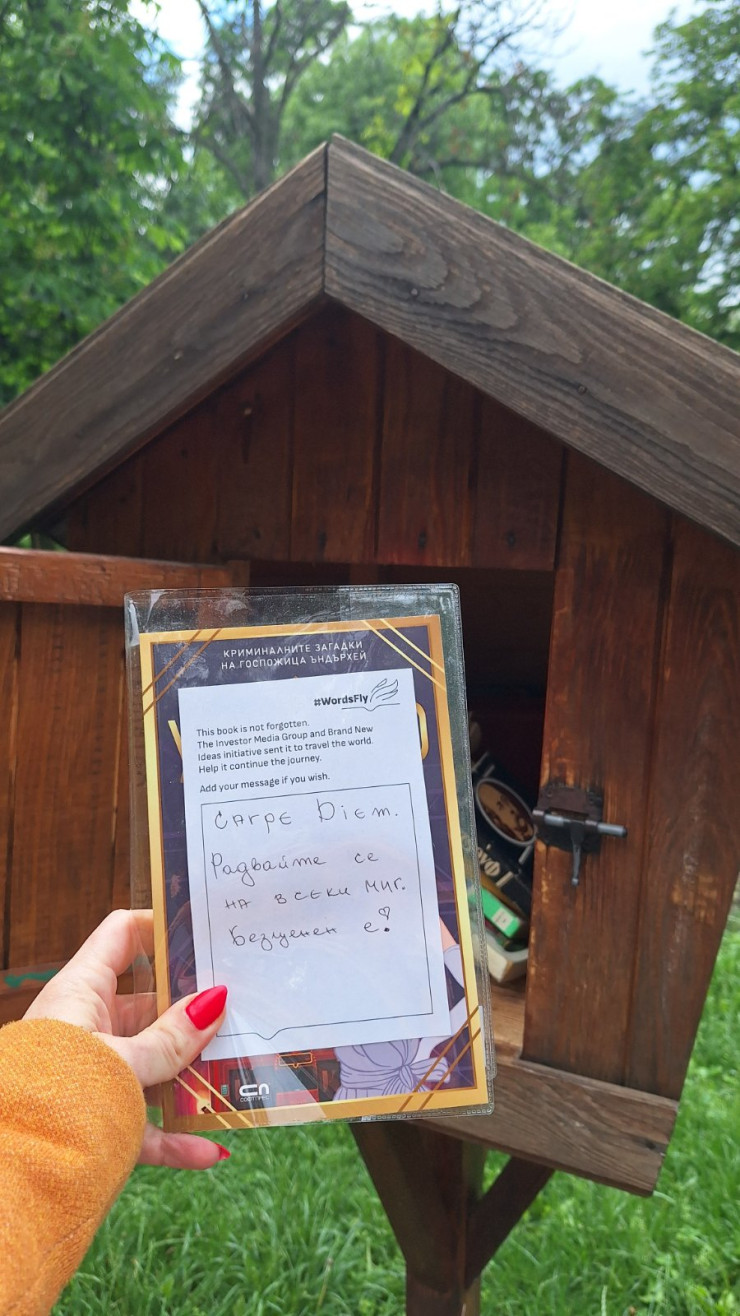 КРИМИНАЛНИТЕ ЗАГАДКИ
НА ГОСПОЖИЦА ЪНДЪРХЕЙ
#WordsFly
This book is not forgotten.
The Investor Media Group and Brand New
Ideas initiative sent it to travel the world.
Help it continue the journey.
Add your message if you wish.
Carpe Diem.
Радвайте се
на всеки миг.
Безценен е!